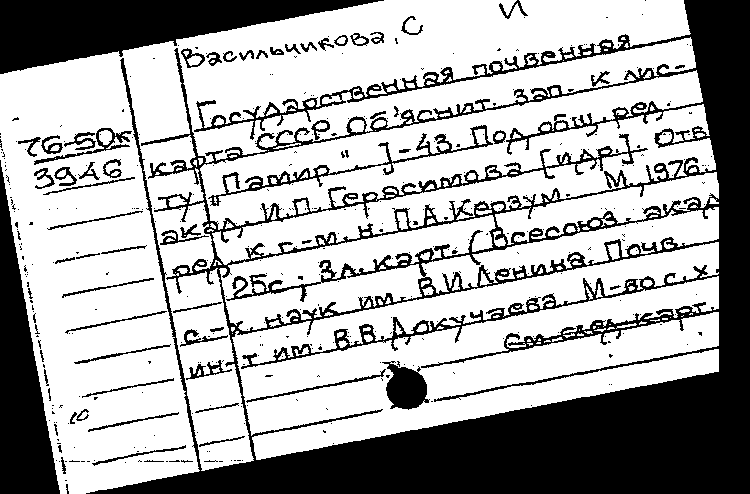 И
Васильчикова, С
Государственная почвенная
карта СССР. Об'яснит. зап. к лис-
ту "Памир". J-43. Под общ. ред.
акад. И.П. Герасимова [и др.]. Отв
ред. к. г.-м. н. П.А. Керзум. М., 1976.
25с; 3л. карт. (Всесоюз. акад
с.-х. наук им. В.И. Ленина. Почв.
ин-т им. В.В. Докучаева. М-во с.х.
См. след. карт.
76-50к
3946
10